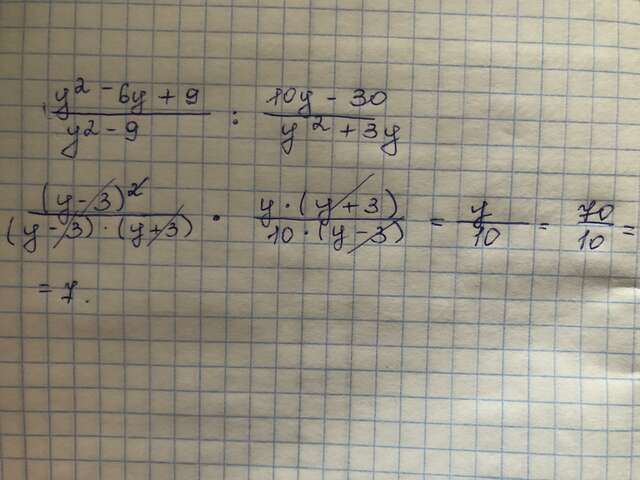 y² - 6y + 9 / y² - 9 : 10y - 30 / y² + 3y
(y - 3)² / (y - 3) · (y + 3) · y · (y + 3) / 10 · (y - 3) = y / 10 = 70 / 10 =
= 7.